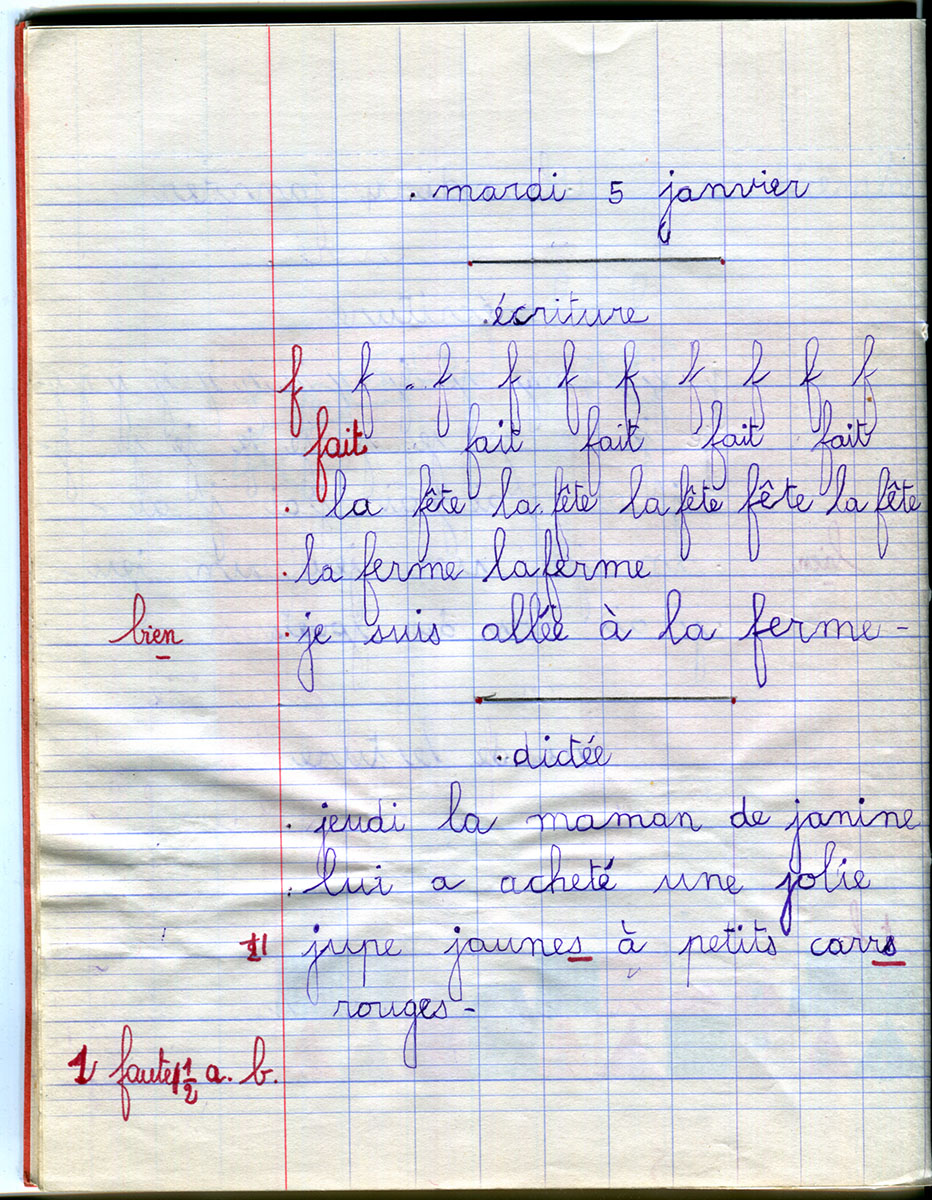 mardi 5 janvier
écriture
f f f f f f f f f f
fait fait fait fait fait
la fête la fête la fête fête la fête
la ferme la ferme
bien je suis allée à la ferme -
dictée
jeudi la maman de janine
lui a acheté une jolie
jupe jaunes à petits carrs
rouges -
1 faute 1/2 a. b.